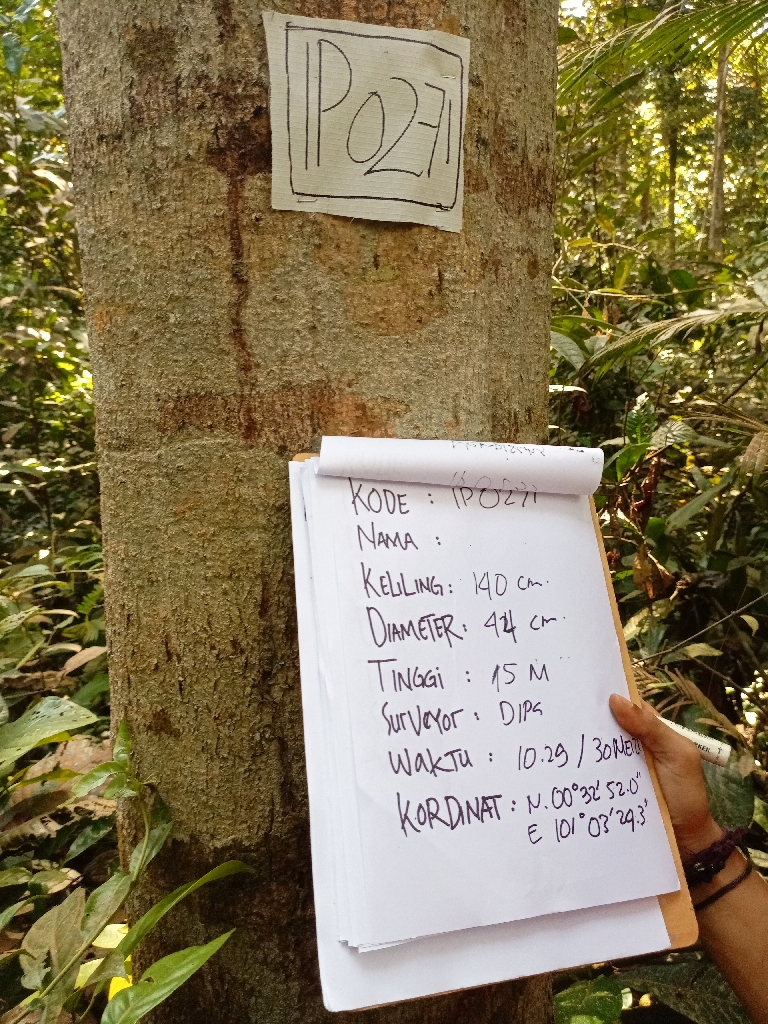 IP0271
KODE : IP0271
NAMA :
KELILING : 140 cm.
DIAMETER : 44 cm.
TINGGI : 15 M
SURVEYOR : DIPS
WAKTU : 10.29 / 30 METER
KORDINAT : N. 00°32'52.0"
E 101°03'29.3"